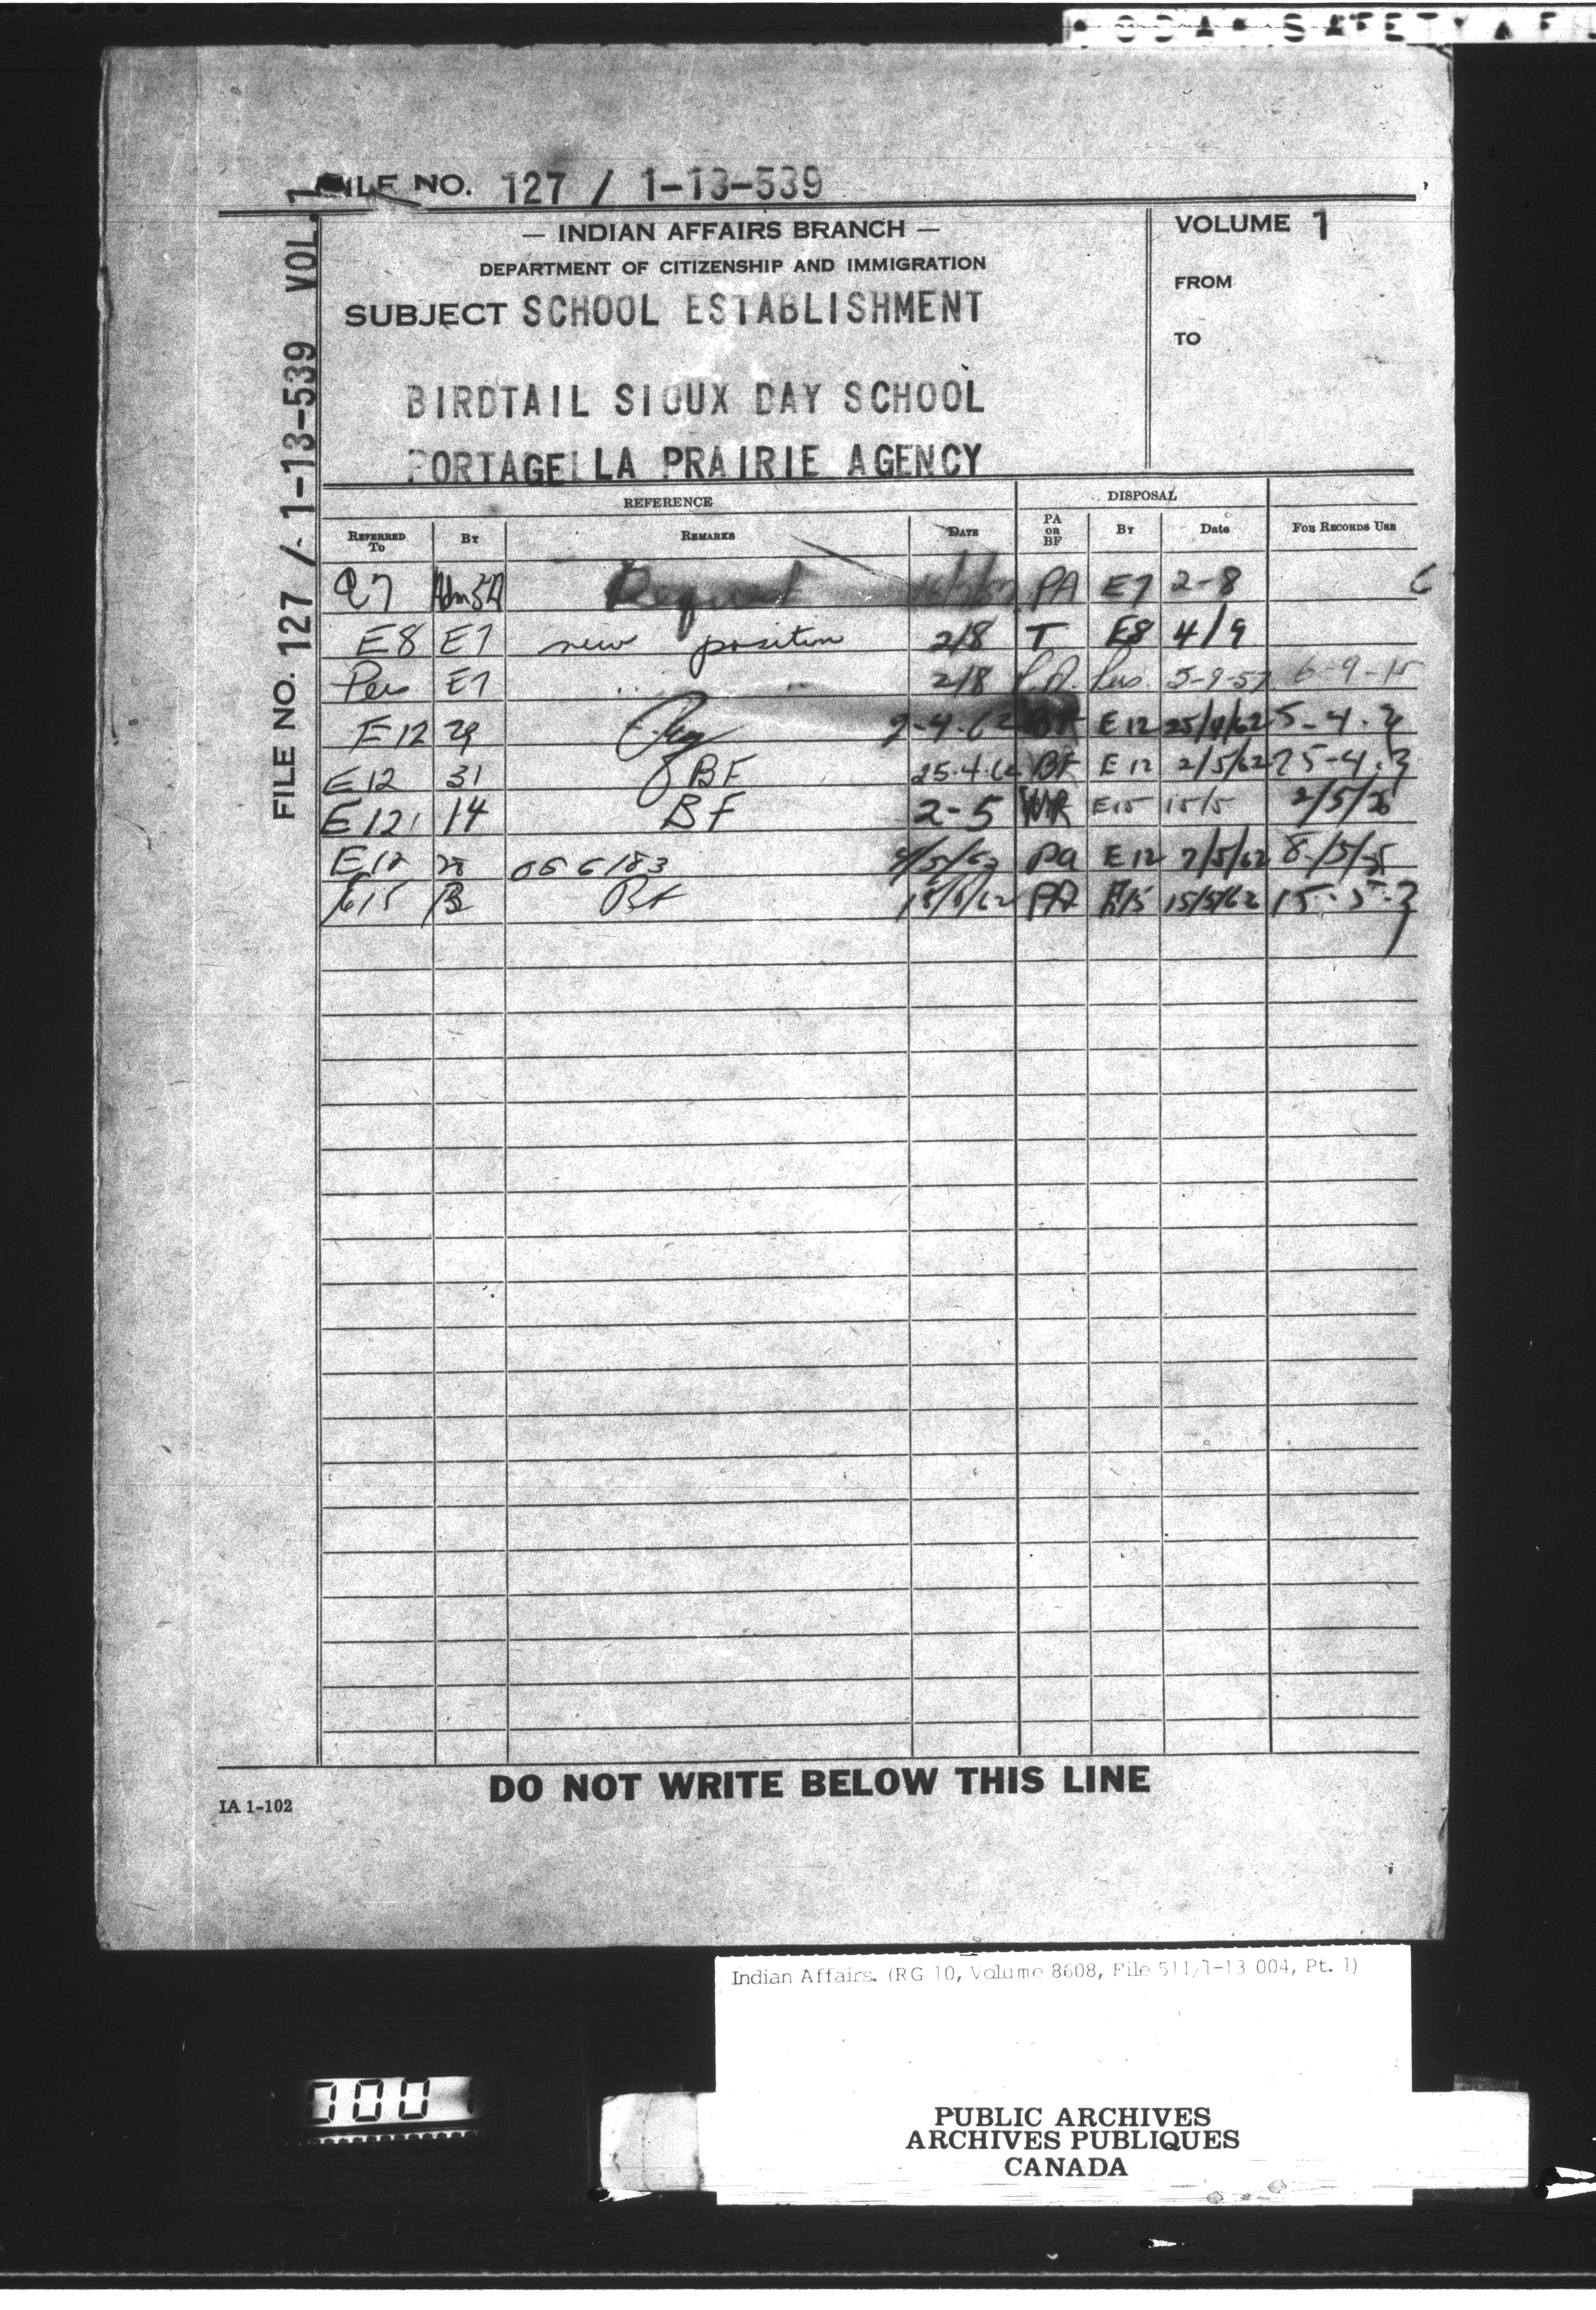 SAFETY
FILE NO. 127 / 1-13-539
FILE NO. 127 / 1-13-539 VOL. 1
— INDIAN AFFAIRS BRANCH —
DEPARTMENT OF CITIZENSHIP AND IMMIGRATION
SUBJECT SCHOOL ESTABLISHMENT
BIRDTAIL SIOUX DAY SCHOOL
PORTAGE LA PRAIRIE AGENCY
VOLUME 1
FROM
TO
REFERENCE DISPOSAL
REFERRED TO BY REMARKS DATE PA OR BF BY Date FOR RECORDS USE
Request PA E7 2-8
E8 E7 new position 2/8 T E8 4/9
Pers E7 " " 2/8 P.A. Pers. 5-9-57
E12 29 2-4-62 BF E12 25/4/62 5-4-2
E12 31 BF 25.4.62 BF E12 2/5/62 25-4.2
E12 14 BF 2-5 E15 15/5
E12 PA E12 7/5/62
E15 BF 15/5/62 PA E15 15/5/62 15-5-2
DO NOT WRITE BELOW THIS LINE
IA 1-102
Indian Affairs. (RG 10, Volume 8608, File 511/1-13 004, Pt. 1)
0001
PUBLIC ARCHIVES
ARCHIVES PUBLIQUES
CANADA